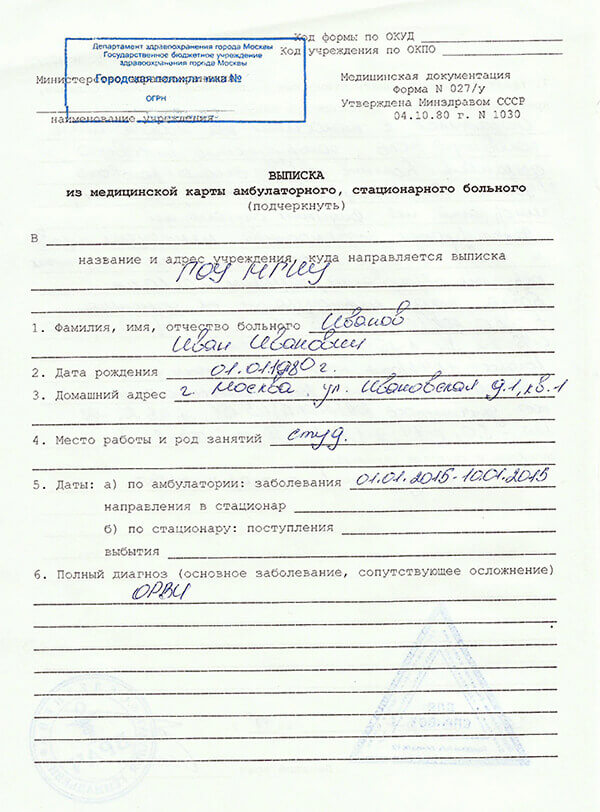 Код формы по ОКУД
Код учреждения по ОКПО
Департамент здравоохранения города Москвы
Государственное бюджетное учреждение
здравоохранения города Москвы
Городская поликлиника №
ОГРН
Министерство
наименование учреждения
Медицинская документация
Форма N 027/у
Утверждена Минздравом СССР
04.10.80 г. N 1030
ВЫПИСКА
из медицинской карты амбулаторного, стационарного больного
(подчеркнуть)
В
название и адрес учреждения, куда направляется выписка
ГОУ МГИУ
1. Фамилия, имя, отчество больного Иванов
Иван Иванович
2. Дата рождения 01.01.1980 г.
3. Домашний адрес г. Москва. ул. Ивановская д.1, кв.1
4. Место работы и род занятий студ.
5. Даты: а) по амбулатории: заболевания 01.01.2015-10.01.2015
направления в стационар
б) по стационару: поступления
выбытия
6. Полный диагноз (основное заболевание, сопутствующее осложнение)
ОРВИ